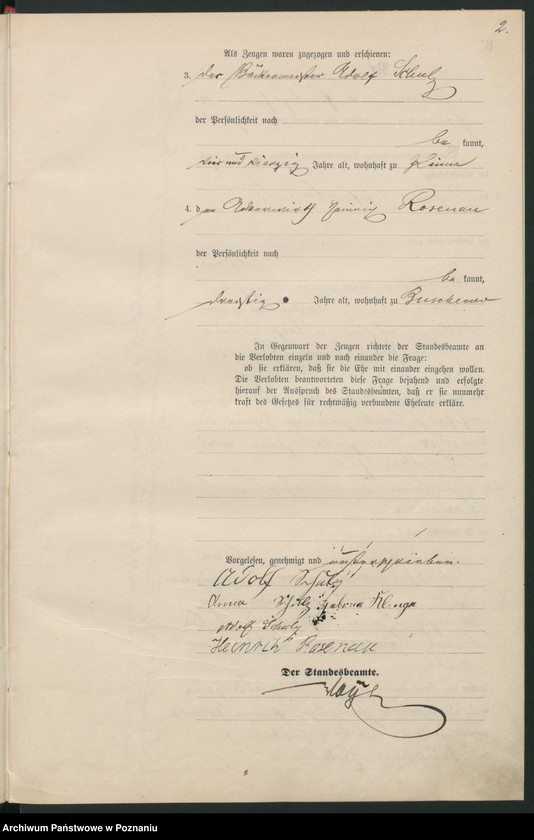 2.
Als Zeugen waren zugezogen und erschienen:
3. der Bäckermeister Adolf Schulz
der Persönlichkeit nach
be kannt,
vier und vierzig Jahre alt, wohnhaft zu
4. der Ackerwirth Heinrich Rosenau
der Persönlichkeit nach
be kannt,
dreißig Jahre alt, wohnhaft zu
In Gegenwart der Zeugen richtete der Standesbeamte an
die Verlobten einzeln und nach einander die Frage:
ob sie erklären, daß sie die Ehe mit einander eingehen wollen.
Die Verlobten beantworteten diese Frage bejahend und erfolgte
hierauf der Ausspruch des Standesbeamten, daß er sie nunmehr
kraft des Gesetzes für rechtmäßig verbundene Eheleute erkläre.
Vorgelesen, genehmigt und unterschrieben.
Adolf Schulz
Anna Schulz geborene Klenge
Adolf Schulz
Heinrich Rosenau
Der Standesbeamte.
Archiwum Państwowe w Poznaniu